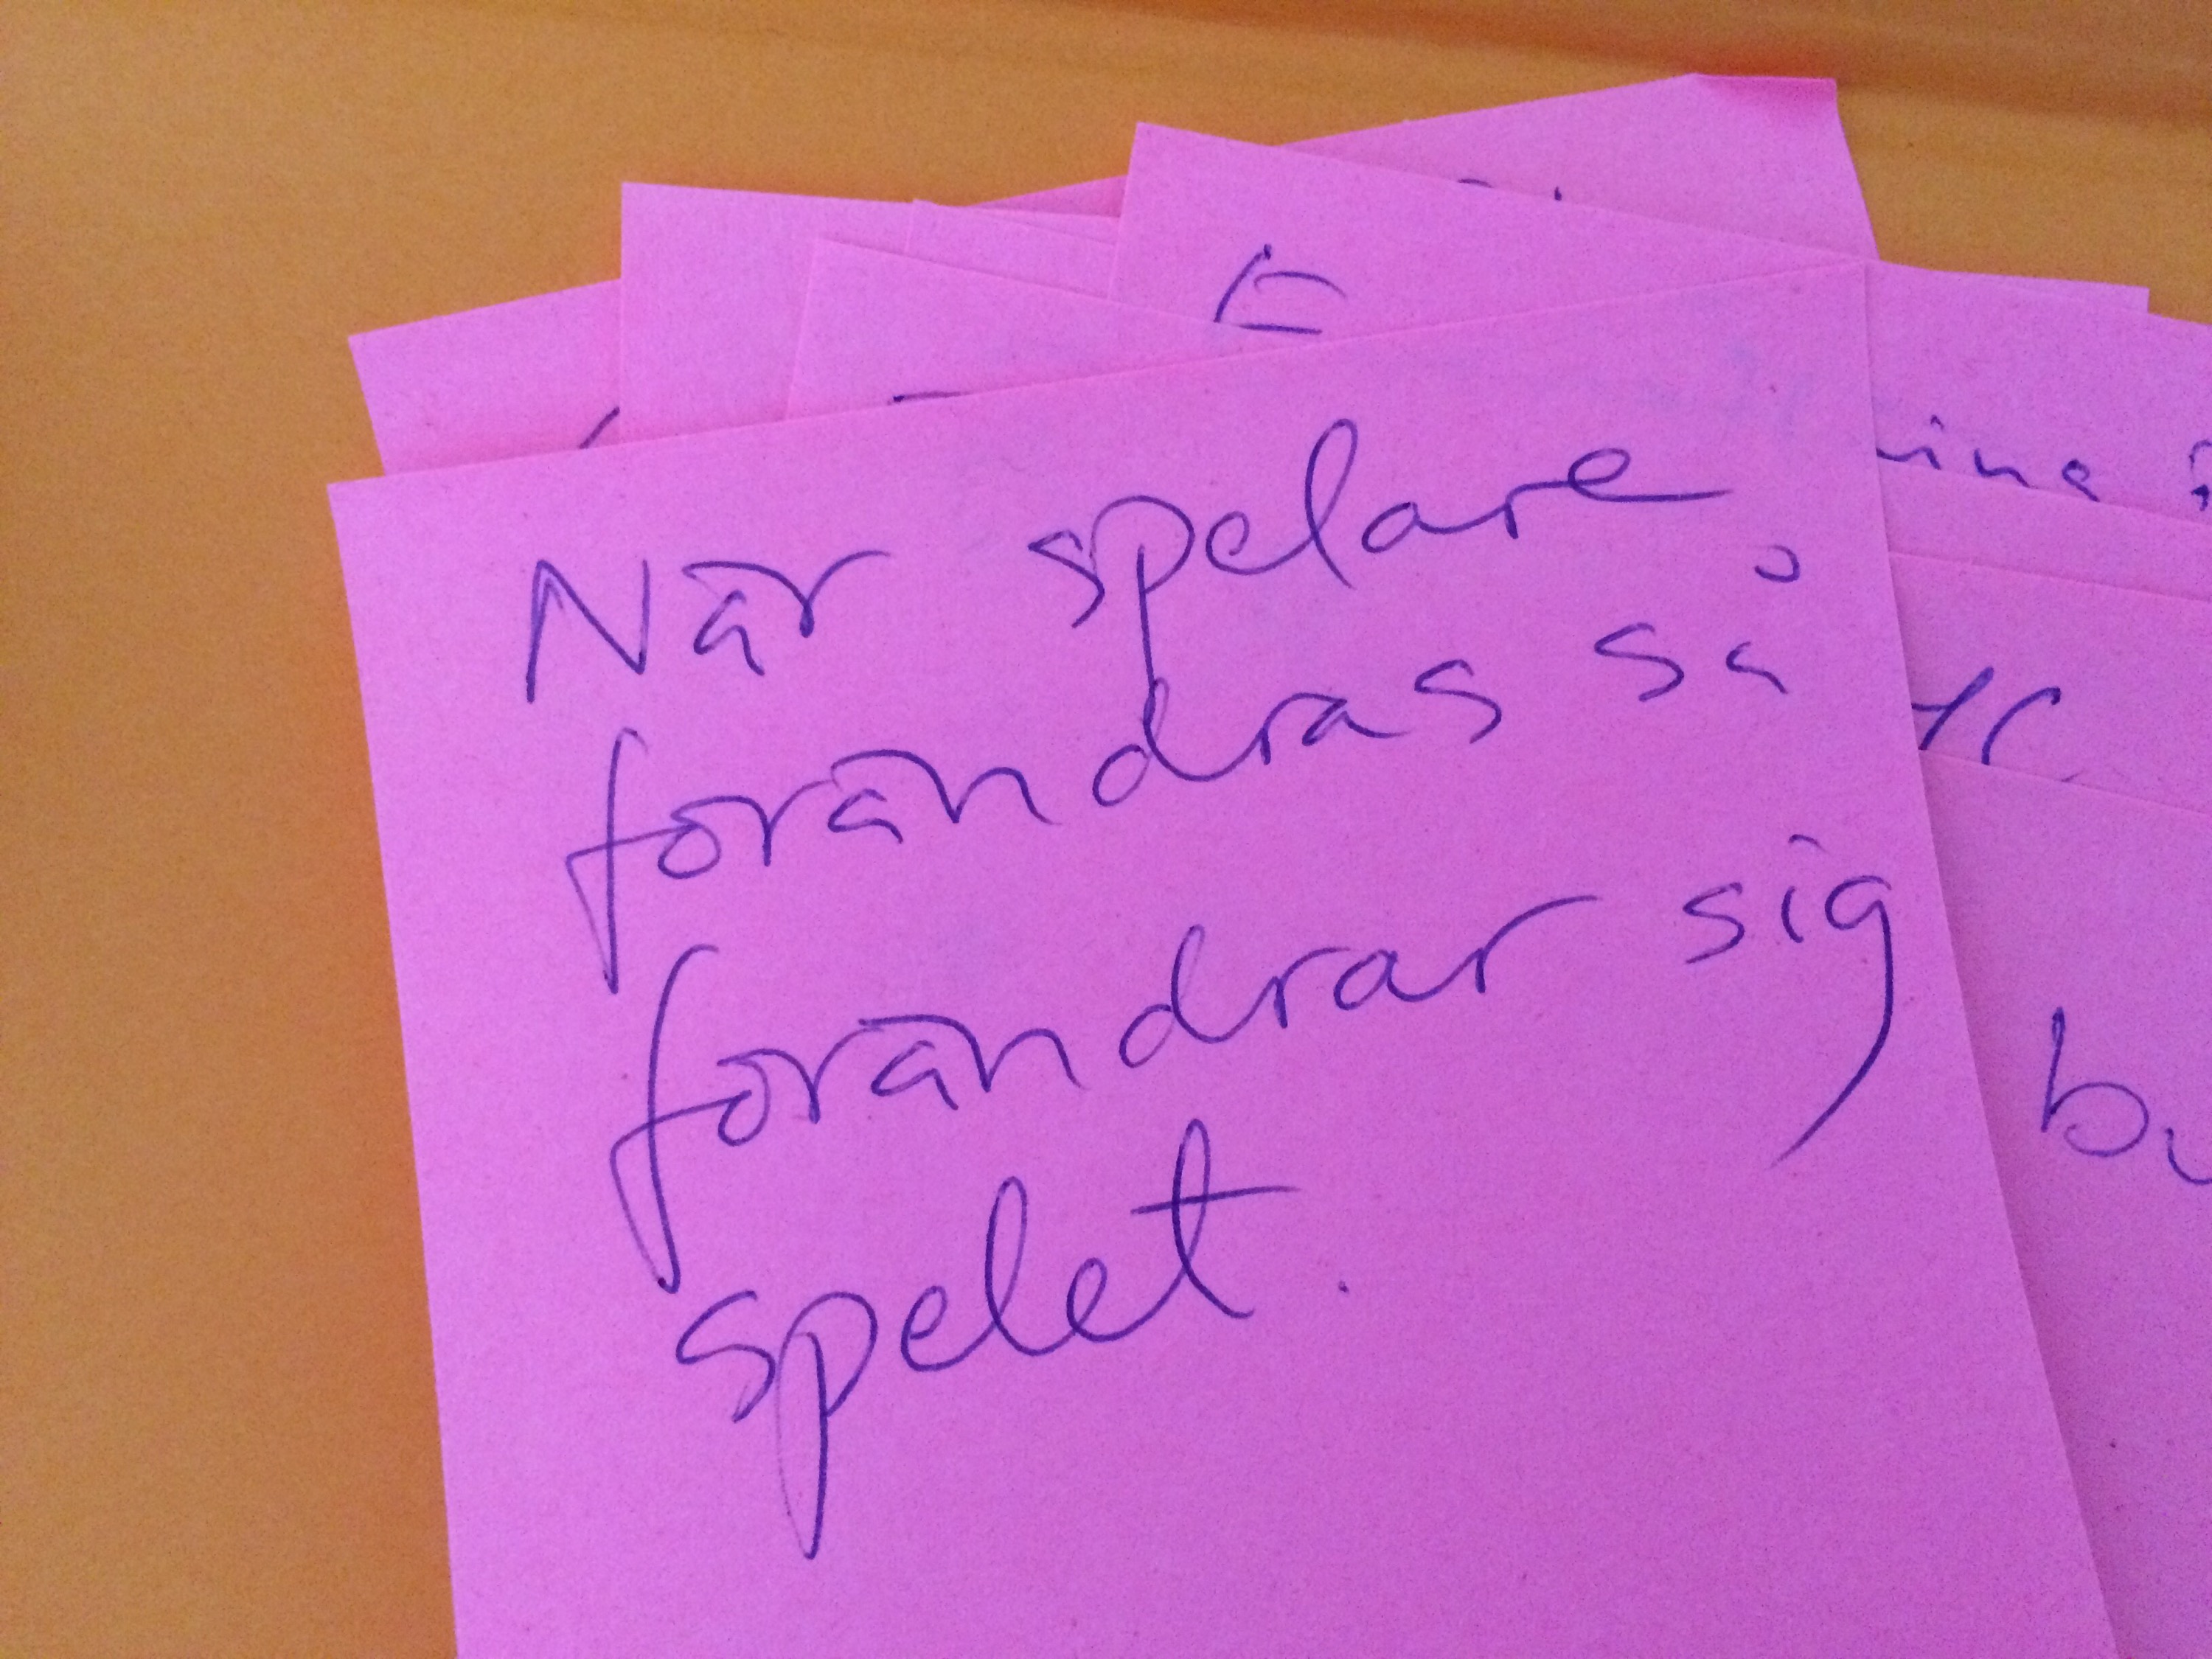 När spelare
förändras så
förändrar sig
spelet.